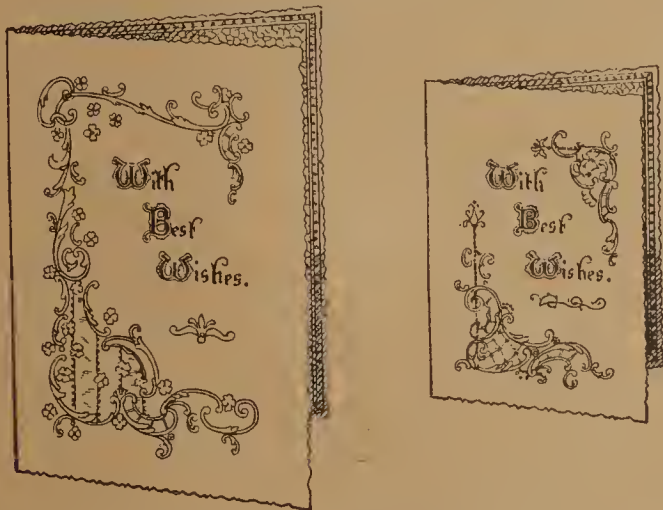 With
Best
Wishes.
With
Best
Wishes.